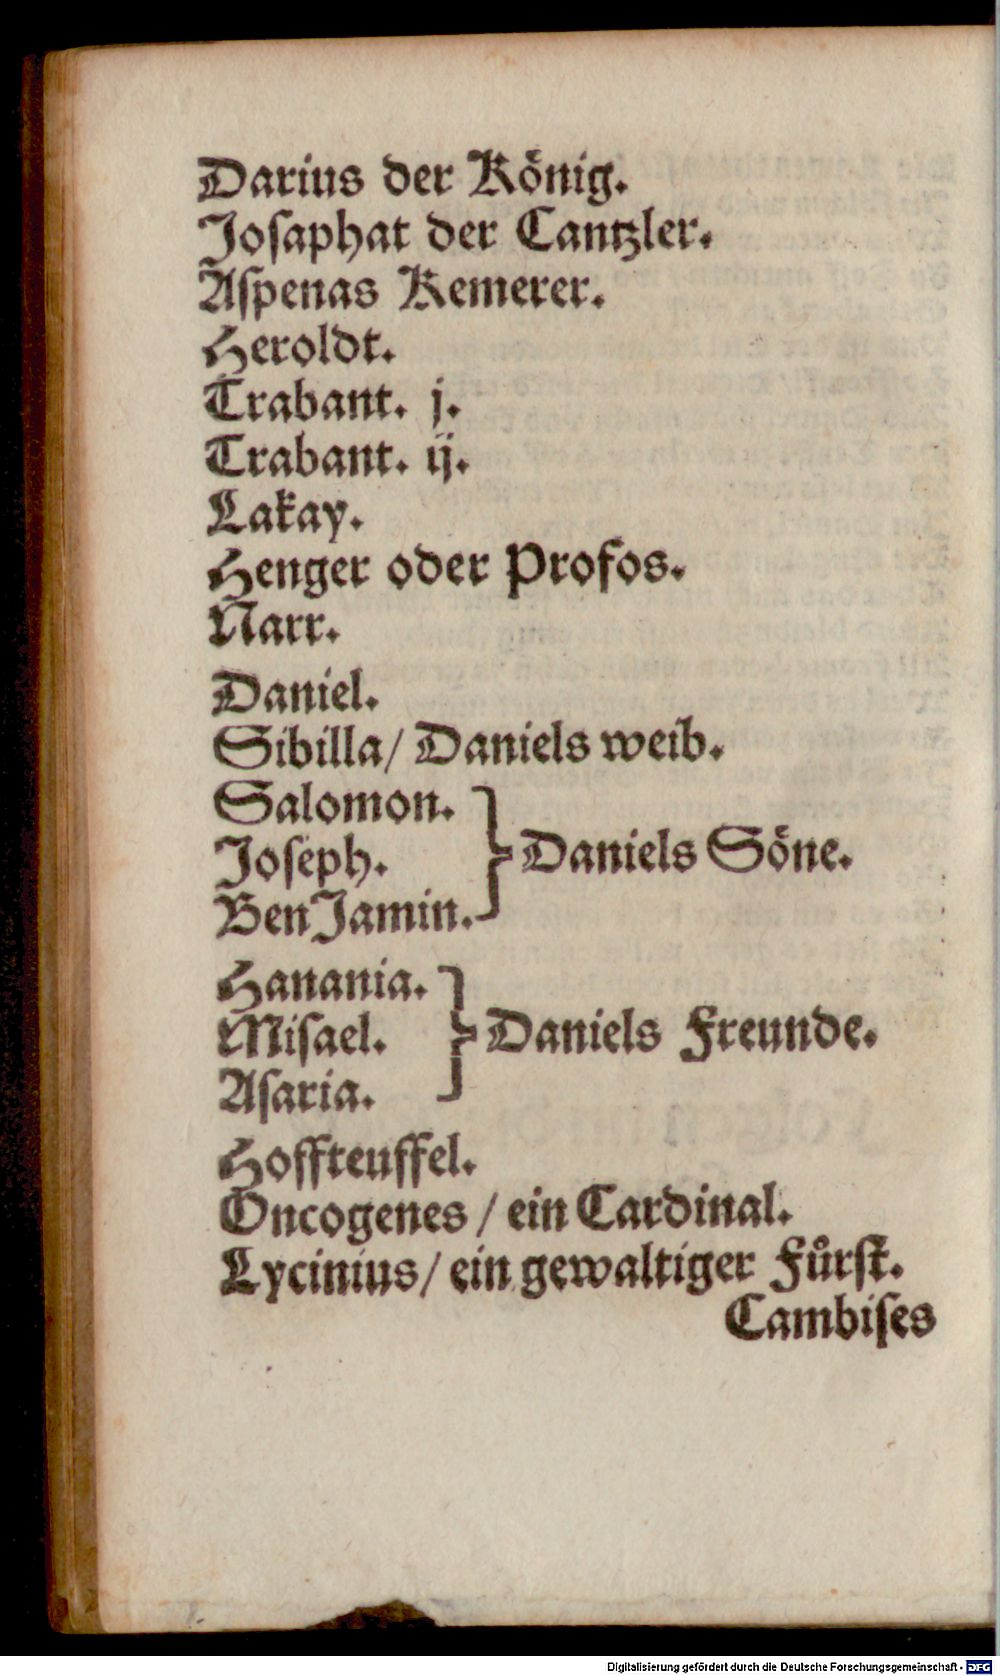 Darius der König.
Joſaphat der Cantzler.
Aſpenas Kemerer.
Heroldt.
Trabant. j.
Trabant. ij.
Lakay.
Henger oder Profos.
Narr.
Daniel.
Sibilla/ Daniels weib.
Salomon.
Joſeph.
Daniels Söne.
BenJamin.
Hanania.
Miſael.
Daniels Freunde.
Aſaria.
Hoffteuffel.
Oncogenes / ein Cardinal.
Lycinius/ ein gewaltiger Fůrſt.
Cambiſes
Digitalisierung gefördert durch die Deutsche Forschungsgemeinschaft - DFG